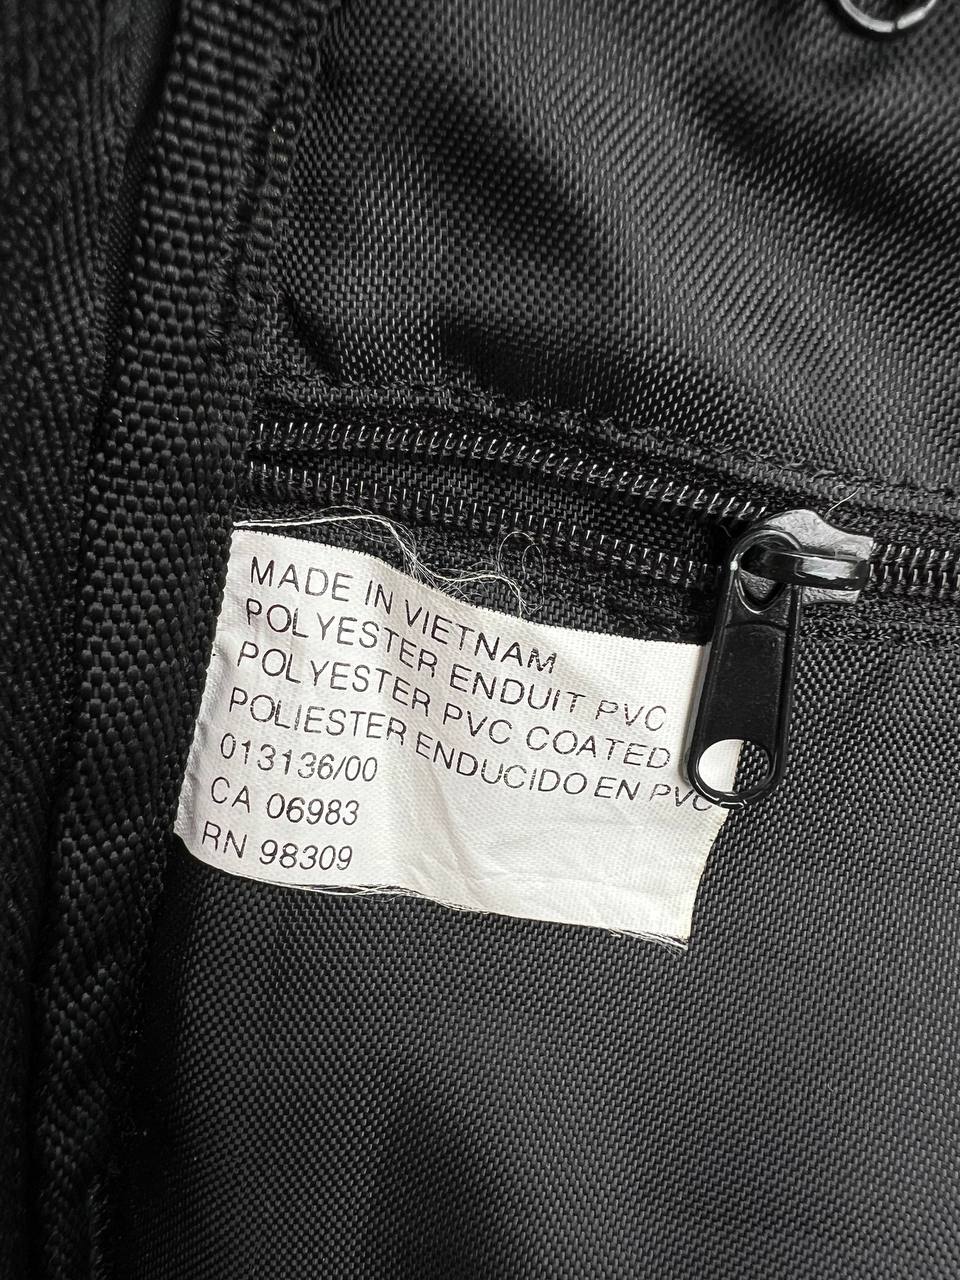 MADE IN VIETNAM
POLYESTER ENDUIT PVC
POLYESTER PVC COATED
POLIESTER ENDUCIDO EN PVC
013136/00
CA 06983
RN 98309